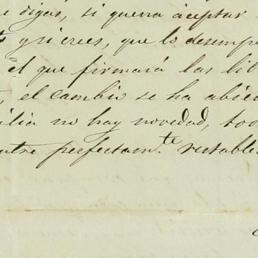 digas, si querra aceptar
y si crees, que lo desempe
el que firmará las lib
, el cambio se ha abie
ilia no hay novedad, tod
ntre perfectam.te restable